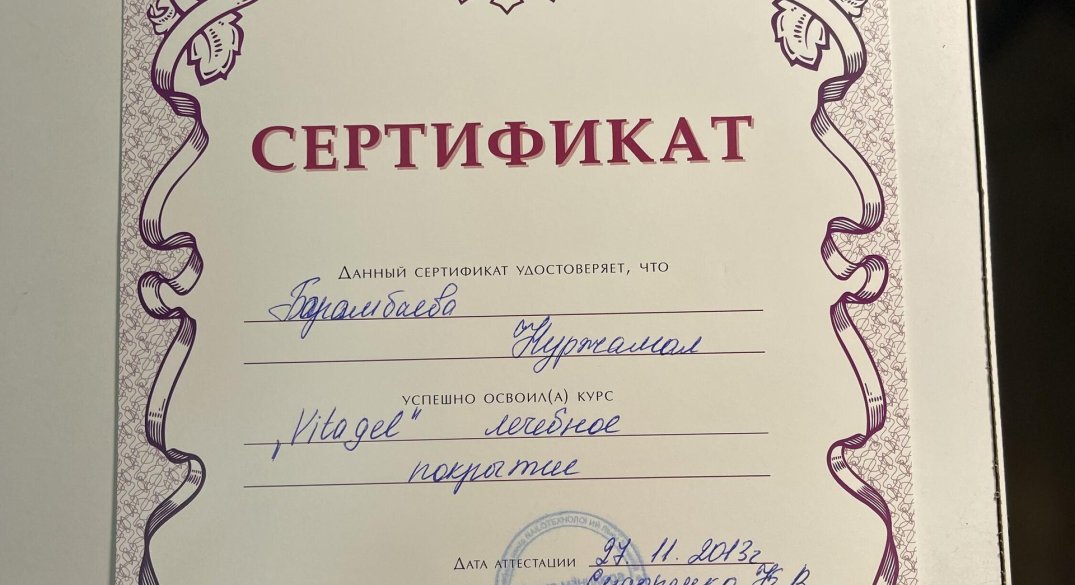 СЕРТИФИКАТ
Данный сертификат удостоверяет, что
Барамбаева
Нуржамал
успешно освоил(а) курс
„Vitagel“ лечебное
покрытие
Дата аттестации 27. 11. 2013г.